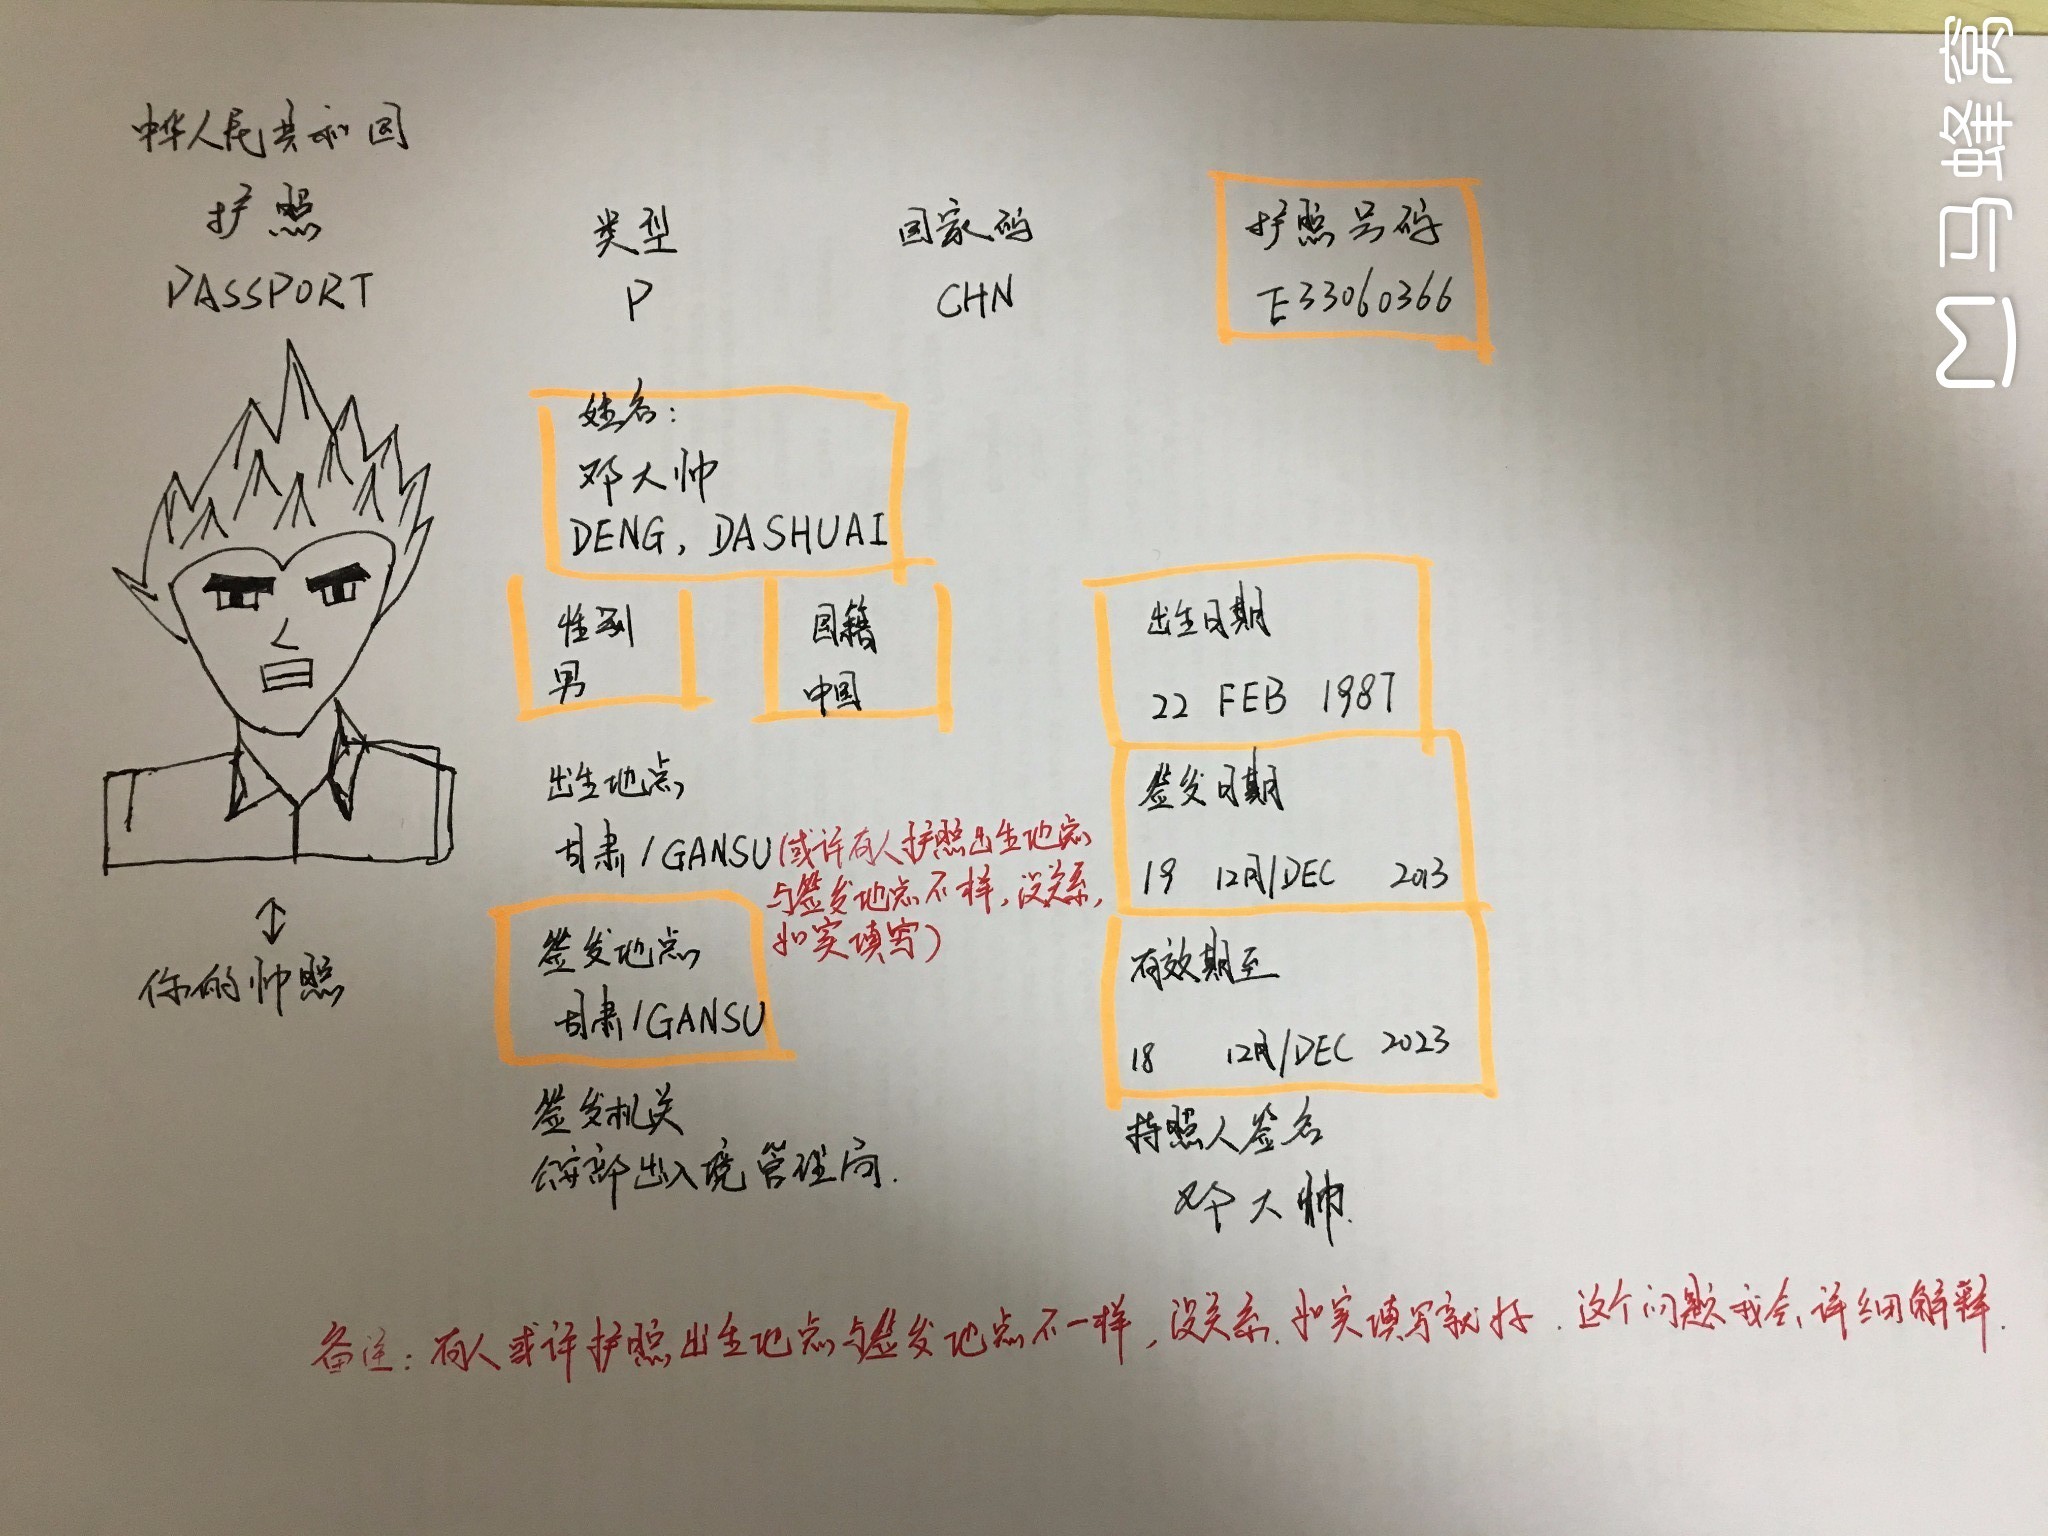 中华人民共和国
护照
PASSPORT
类型
P
国家码
CHN
护照号码
E33060366
姓名:
邓大帅
DENG, DASHUAI
性别
男
国籍
中国
出生日期
22 FEB 1987
出生地点
甘肃/GANSU(或许有人护照出生地点
与签发地点不一样,没关系,
如实填写)
签发日期
19 12月/DEC 2013
签发地点
甘肃/GANSU
有效期至
18 12月/DEC 2023
签发机关
公安部出入境管理局.
持照人签名
邓大帅.
你的帅照
备注:有人或许护照出生地点与签发地点不一样,没关系.如实填写就好.这个问题我会详细解释.
马蜂窝